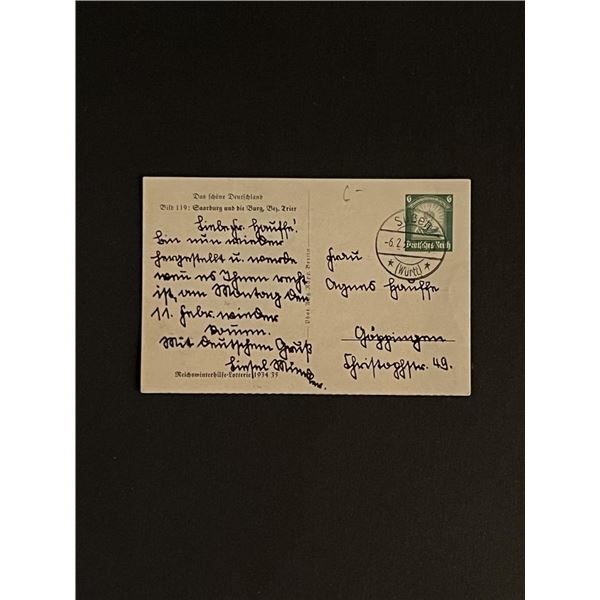 Das schöne Deutschland
Bild 119: Saarburg und die Burg, Bez. Trier
Liebe Fr. Hauffe!
Bin nun wieder
hergestellt u. werde
wenn es Ihnen recht
ist, am Montag den
11. Febr. wieder
kommen.
Mit deutschem Gruß
Liesel
Reichswinterhilfe-Lotterie 1934 35
6 6
Deutsches Reich
Süßen
-6.2.
(Württ)
Frau
Agnes Hauffe
Göppingen
Christophstr. 49.